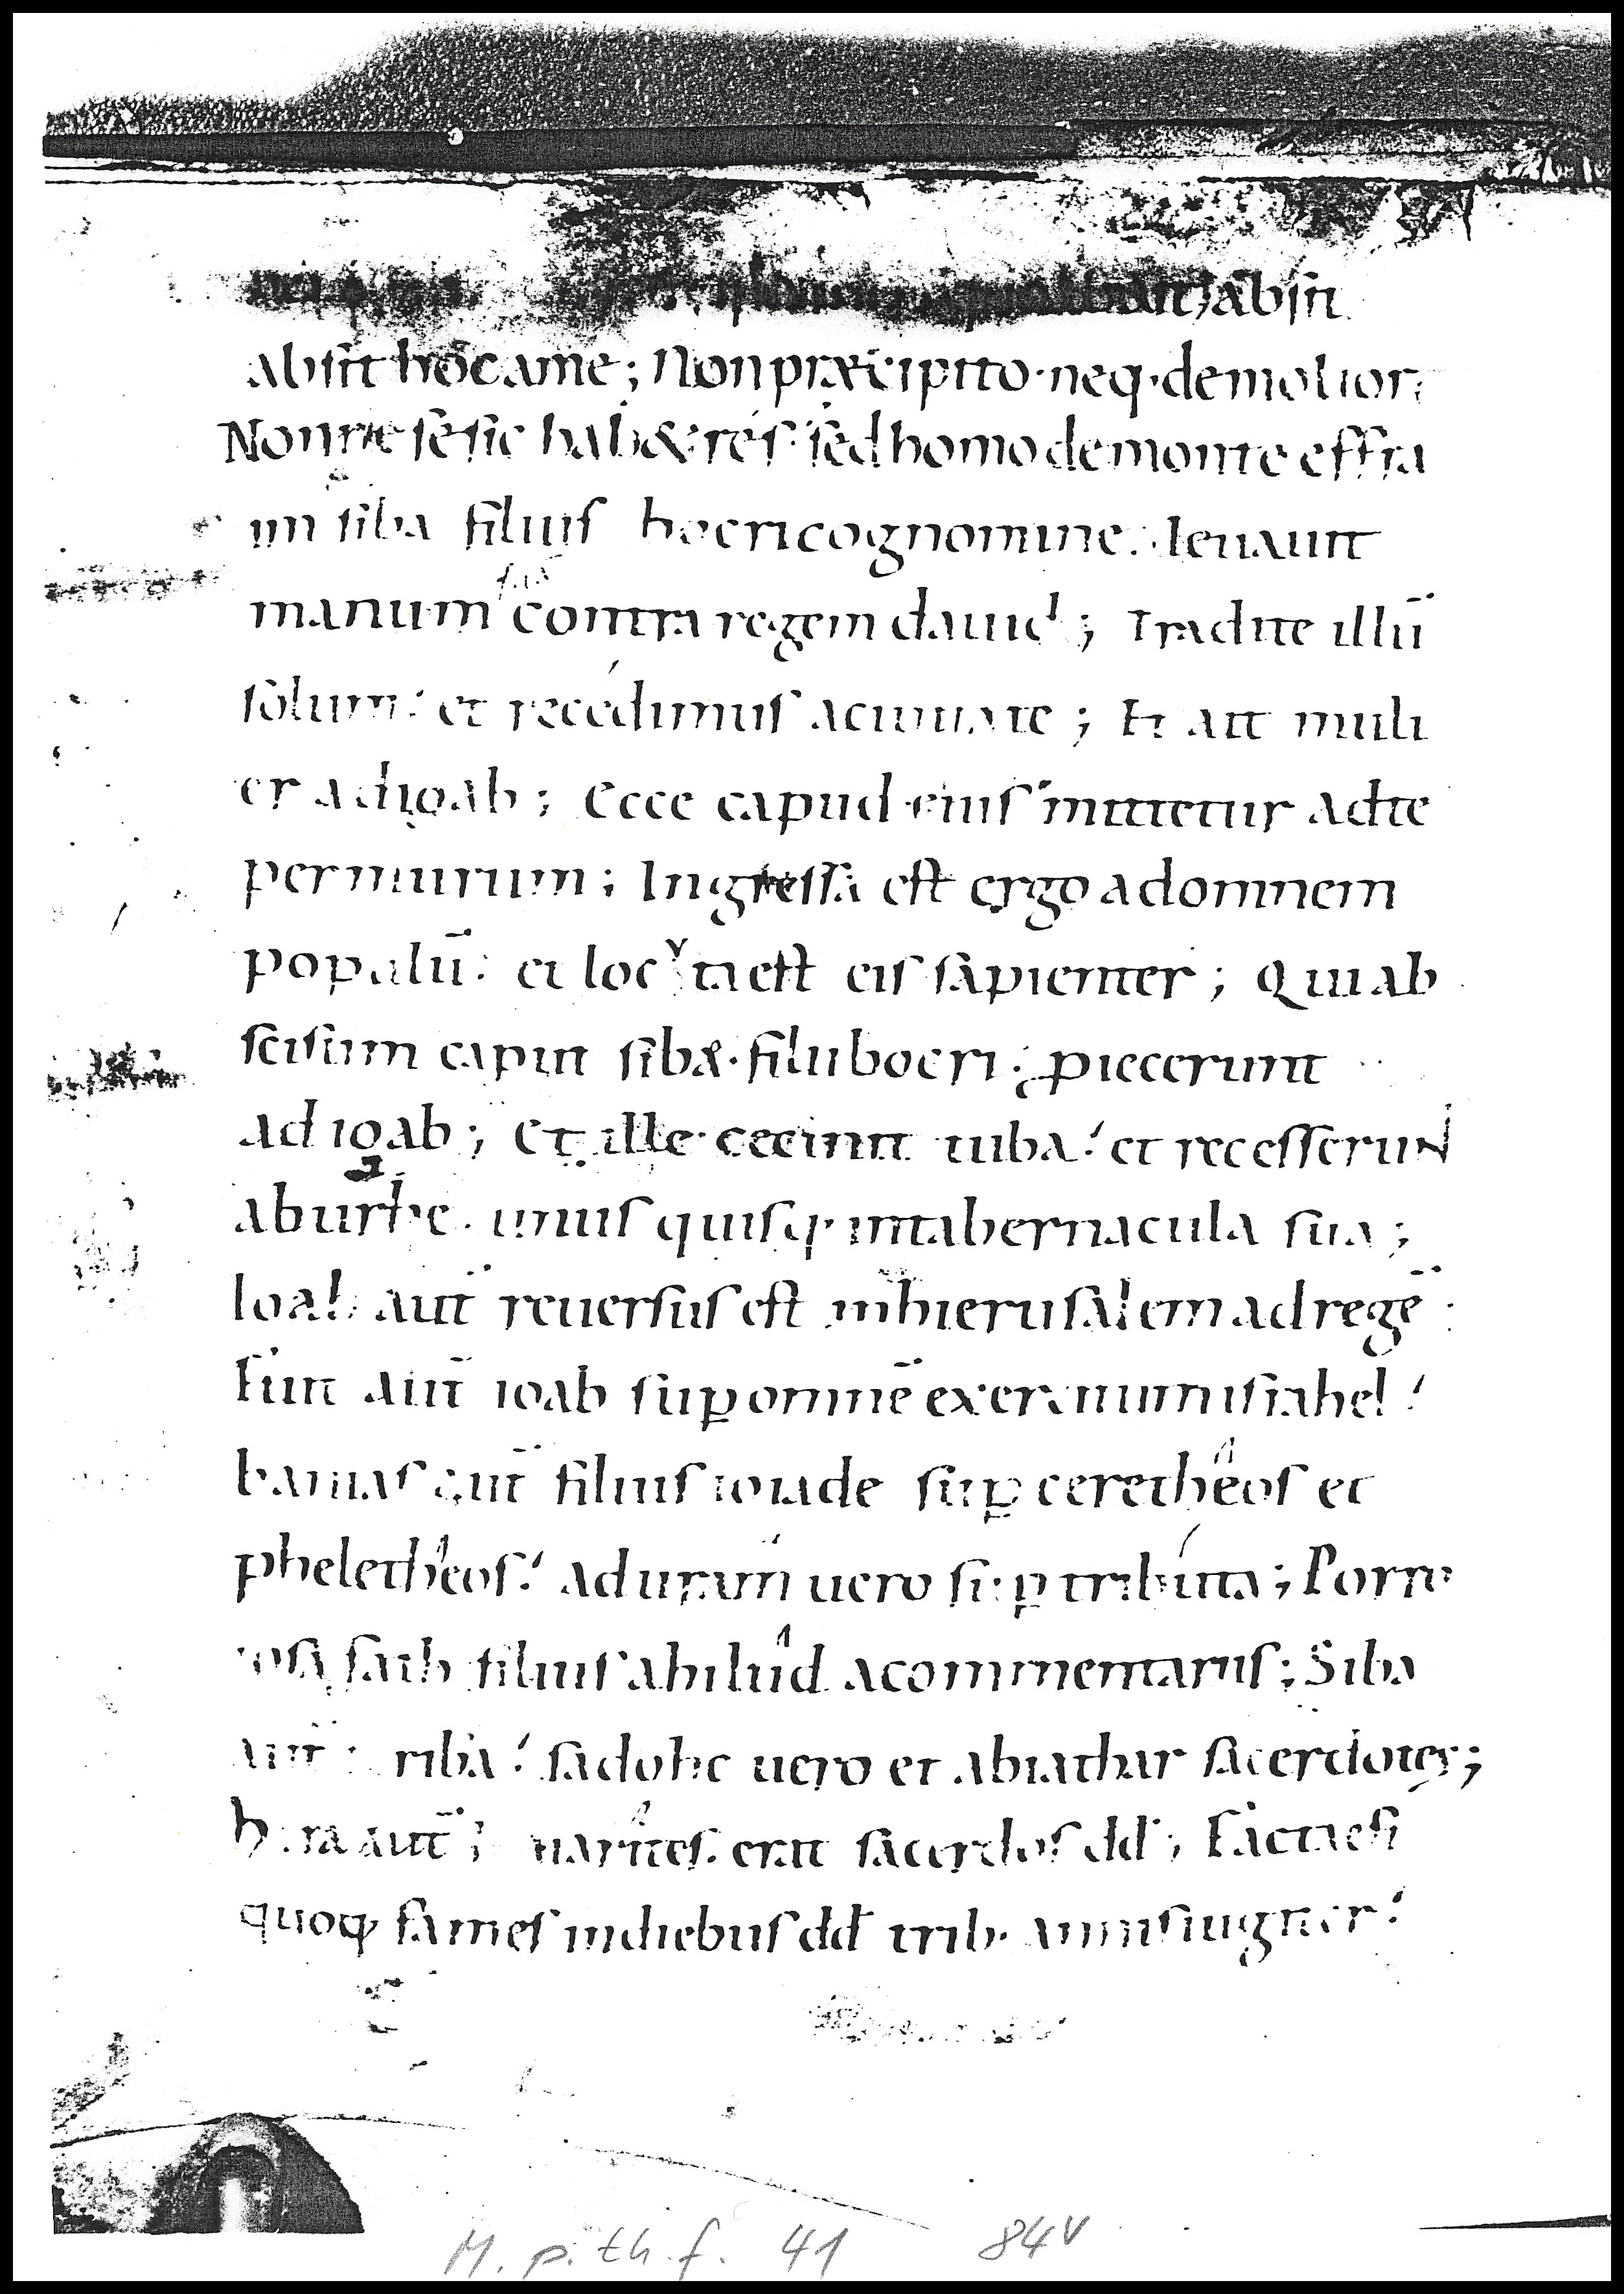 absit
absit hoc a me; Non præcipito· neq· demolior;
Non se sic hab& res· sed homo de monte effra
im siba filius bocri cognomine· leuauit
manum suā contra regem dauid; Tradite illū
solum: et recedimus a ciuitate; Et ait muli
er ad ioab; Ecce capud eius mittetur ad te
per murum; Ingressa est ergo ad omnem
populū: et locuta est eis sapienter; Qui ab
scisum caput sibæ· filii bocri; ꝓiecerunt
ad ioab; Et ille cecinit tuba: et recesserunt
ab urbe· unus quisq· in tabernacula sua;
Ioab aut̄ reuersus est in hierusalem ad regē
Fuit aut̄ ioab suꝑ omnē exercitum israhel:
banaias aut̄ filius ioiade suꝑ ceretheos et
pheletheos: aduram uero suꝑ tributa; Porro
iosasath filius ahilud a commentariis; Siba
aut̄ scriba: sadohc uero et abiathar sacerdotes;
hira aut̄ iiarites· erat sacerdos dd̄; Facta est
quoq; fames in diebus dd̄ trib· annis iugiter:
M. p. th. f. 41 84v